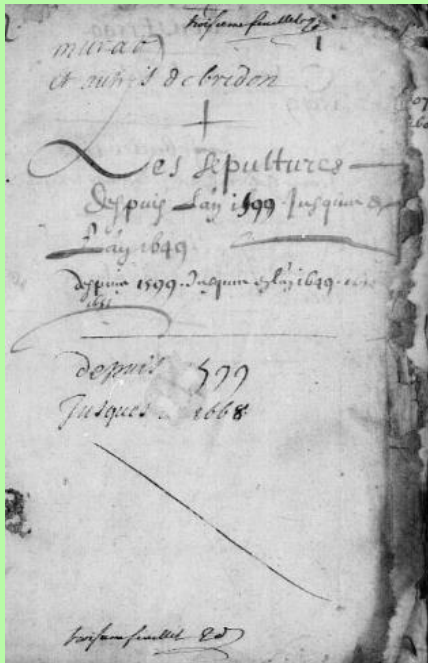 troisieme feuillet
murat
et autres de bredon
Les sepultures
despuis Lan 1599 Jusques
Lan 1649
despuis 1599 Jusques Lan 1649
depuis 1599
Jusques 1668
troisieme feuillet